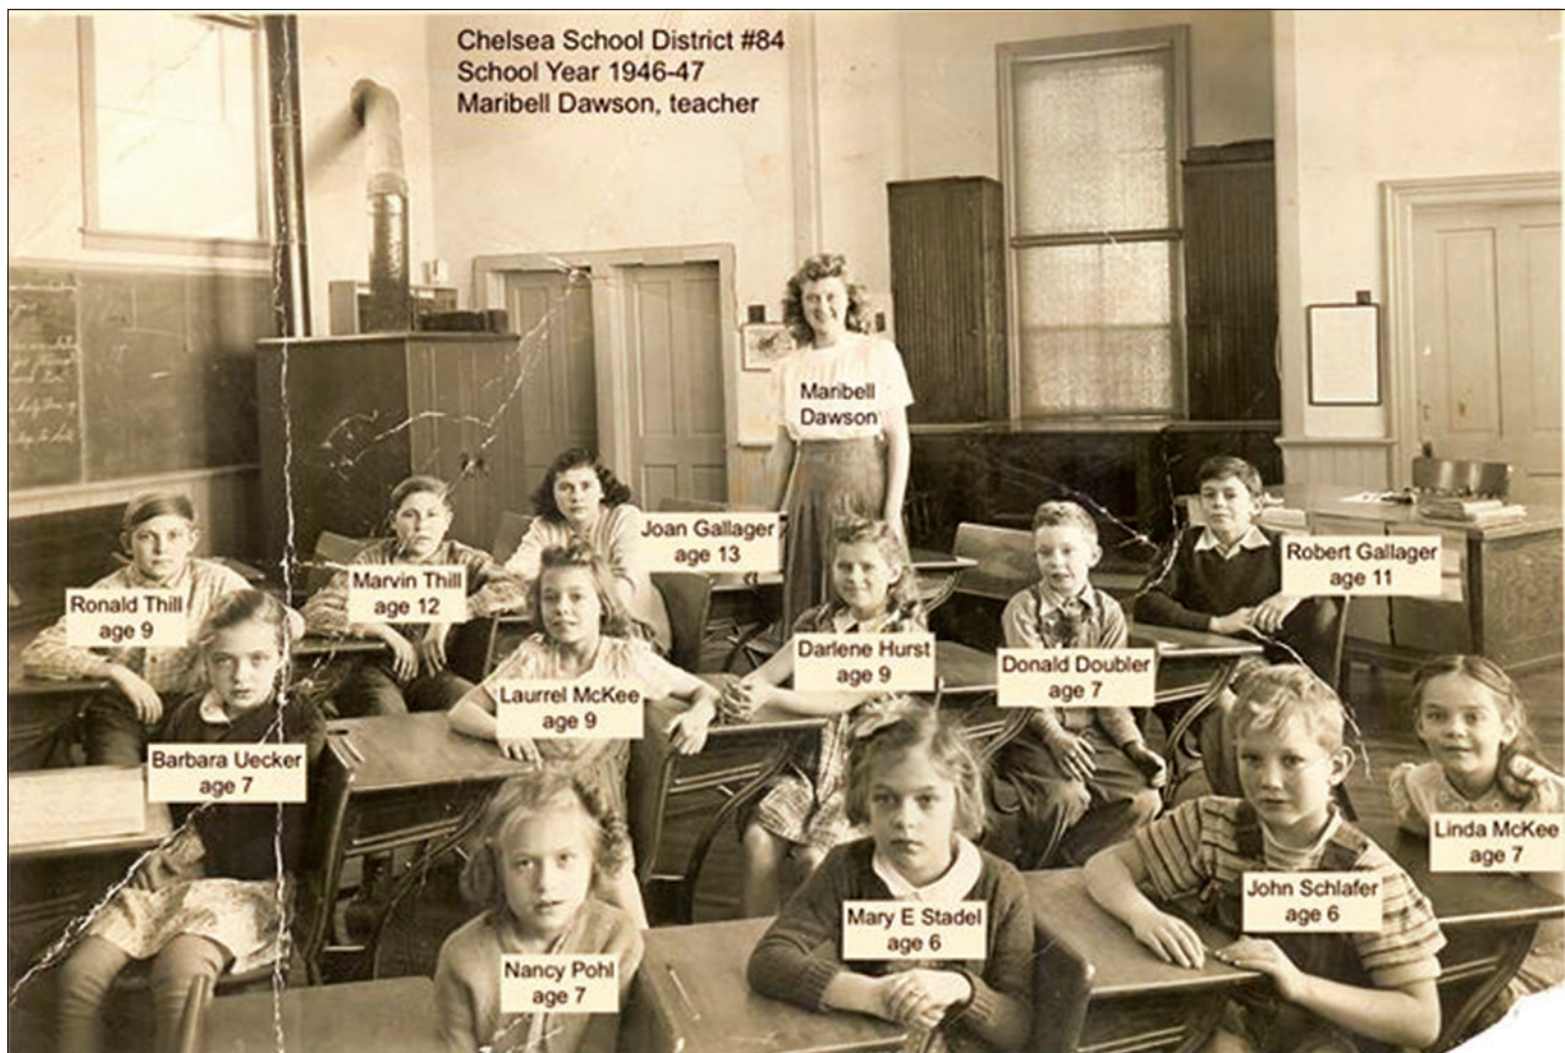 Chelsea School District #84
School Year 1946-47
Maribell Dawson, teacher
Maribell
Dawson
Joan Gallager
age 13
Robert Gallager
age 11
Marvin Thill
age 12
Ronald Thill
age 9
Darlene Hurst
age 9
Donald Doubler
age 7
Laurrel McKee
age 9
Barbara Uecker
age 7
Linda McKee
age 7
John Schlafer
age 6
Mary E Stadel
age 6
Nancy Pohl
age 7